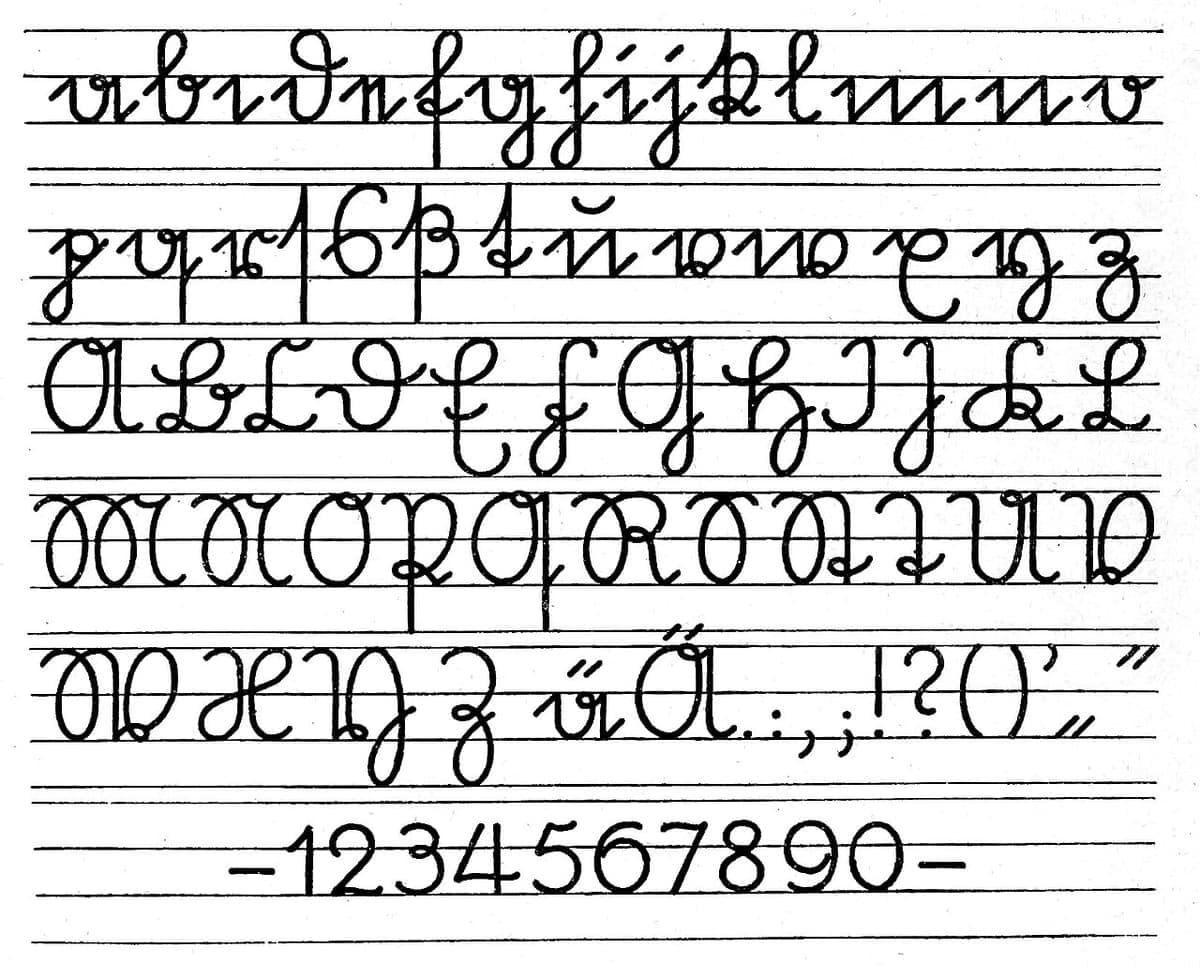 a b c d e f g h i j k l m n o
p q r ſ s ß t u v w x y z
A B C D E F G H I J K L
M N O P Q R S St T U V
W X Y Z ä Ä . : , ; ! ? ( ) ’ „ “
- 1 2 3 4 5 6 7 8 9 0 -